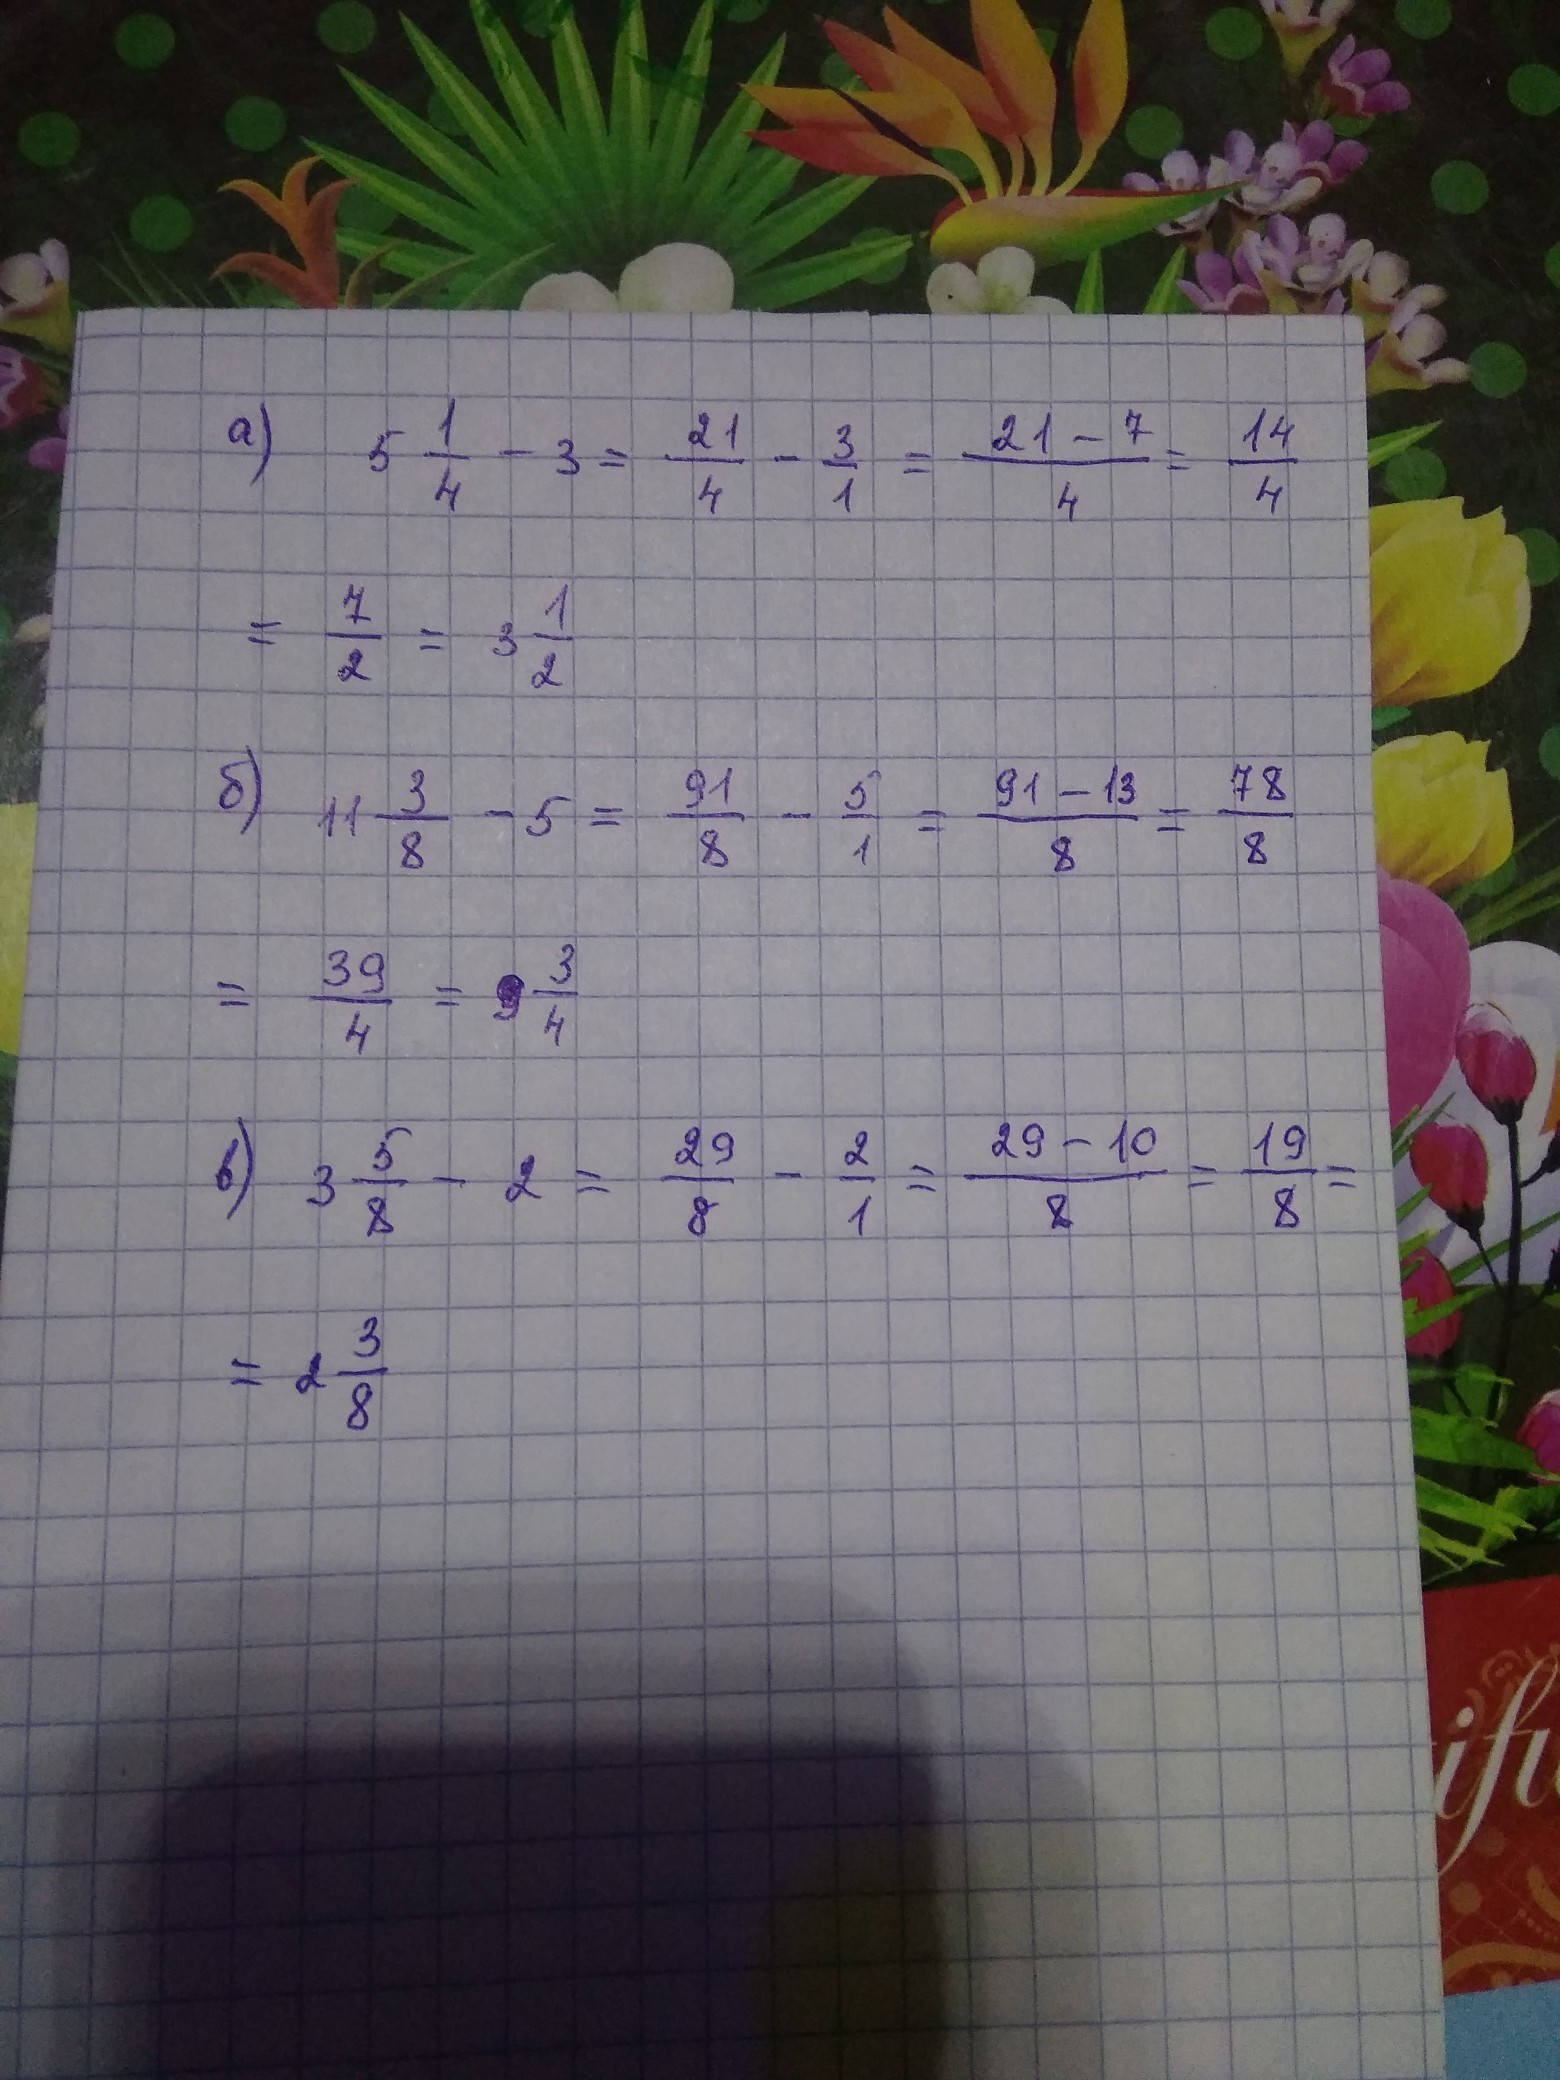 а) 5 1/4 - 3 = 21/4 - 3/1 = 21 - 7/4 = 14/4
= 7/2 = 3 1/2
б) 11 3/8 - 5 = 91/8 - 5/1 = 91 - 13/8 = 78/8
= 39/4 = 9 3/4
в) 3 5/8 - 2 = 29/8 - 2/1 = 29 - 10/8 = 19/8 =
= 2 3/8